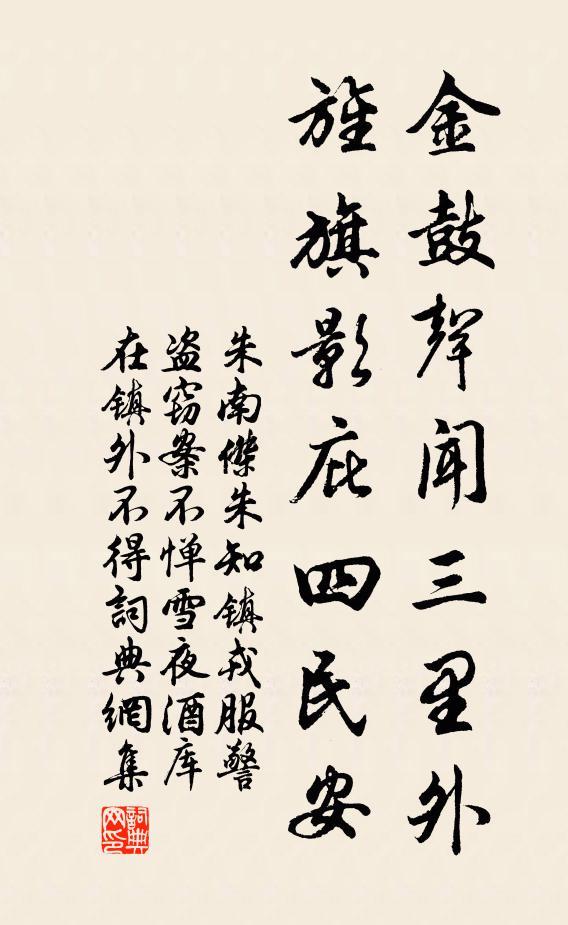 金鼓聲闻三里外
旌旗影庇四民安
朱南傑朱知镇戎服警
盗窃案不惮雪夜酒库
在镇外不得詞典網集
詞典
网印